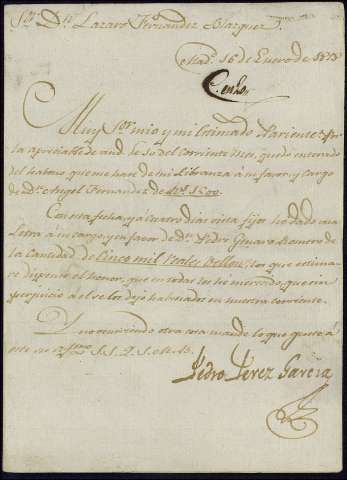 Sor. Dn. Lazaro Fernandez Blazquez.
Mad. 16 de Enero de
Muy Sor. mio y mi estimado Pariente: Por
la apreciable de Vmd. de 10 del corriente mes, quedo enterado
del haber que me hace de mi Libranza a su favor y cargo
de Dn. Angel Fernandez de
Con esta fecha, y a quatro dias vista fijos he dado una
Letra a su cargo, y en favor de Dn. Pedro Romero de
la Cantidad de Cinco mil Reales Vellon; los que estima-
re dispense el honor, que en todas las he merecido, que sin
perjuicio a el se los dejo havonados en nuestra corriente.
No ocurriendo otra cosa mande lo que guste á
este su S.S.Q.S.M.B.
Pedro Perez Garcia